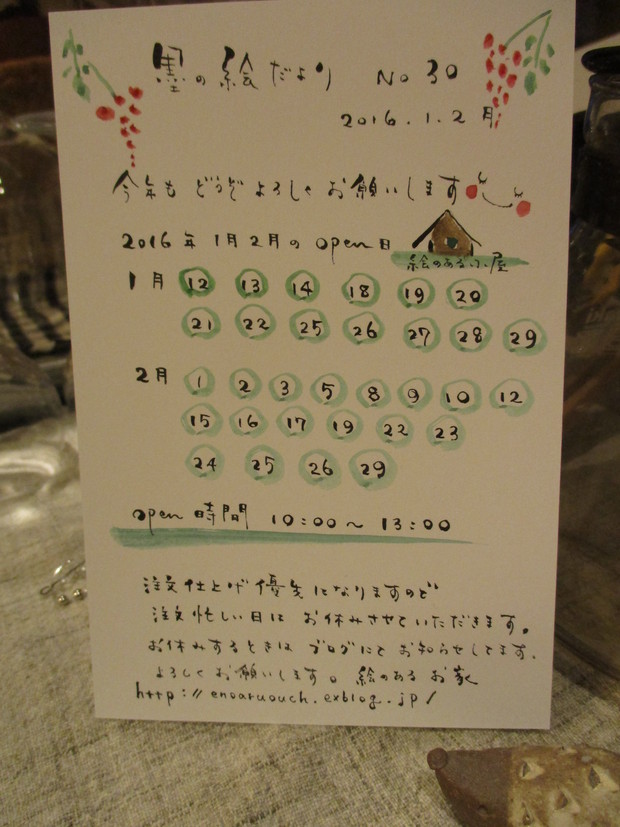 墨の絵だより No 30
2016.1.2月
今年も どうぞ よろしく お願いします
2016年 1月2月の open日
絵のある小屋
1月 12 13 14 18 19 20
21 22 25 26 27 28 29
2月 1 2 3 5 8 9 10 12
15 16 17 19 22 23
24 25 26 29
open 時間 10:00〜13:00
注文仕上げ優先になりますので
注文忙しい日は お休みさせていただきます。
お休みするときは ブログにて お知らせしてます.
よろしくお願いします。 絵のある お家
http://enoaruouch.exblog.jp/